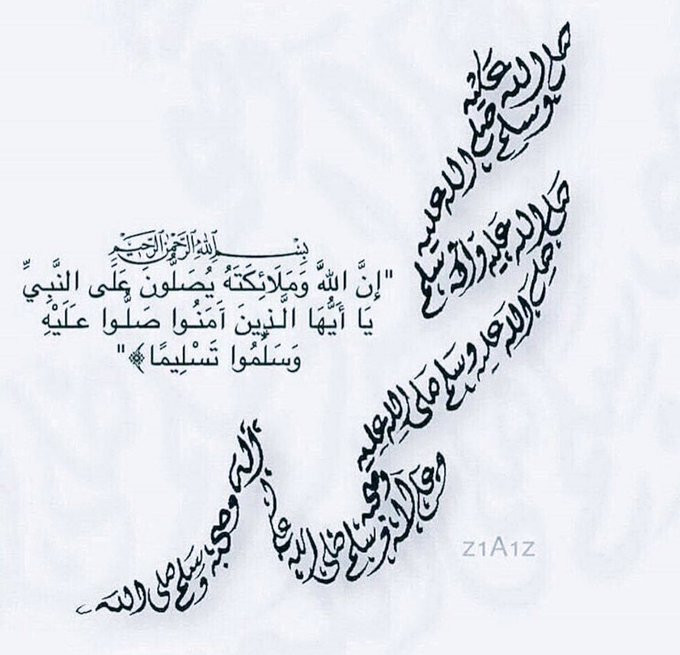 صلى الله عليه
وسلم صلى الله عليه وسلم
صلى الله عليه وآله
صلى الله عليه وسلم صلى الله عليه
وصحبه وسلم صلى الله
وعلى آله وسلم صلى الله عليه
آله وصحبه وسلم صلى الله
بسم الله الرحمن الرحيم
"إِنَّ اللَّهَ وَمَلَائِكَتَهُ يُصَلُّونَ عَلَى النَّبِيِّ
يَا أَيُّهَا الَّذِينَ آمَنُوا صَلُّوا عَلَيْهِ
وَسَلِّمُوا تَسْلِيمًا﴾"
Z1A1Z